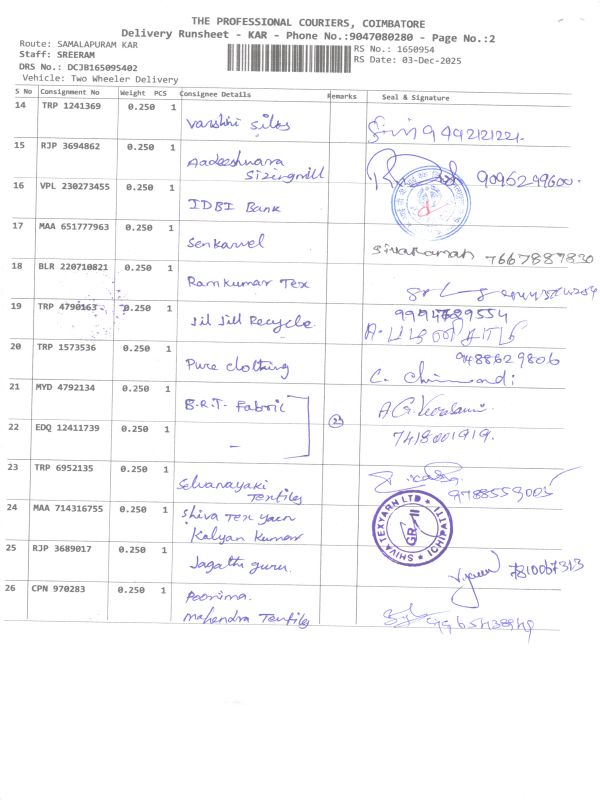 THE PROFESSIONAL COURIERS, COIMBATORE
Delivery Runsheet - KAR - Phone No.:9047080280 - Page No.:2
Route: SAMALAPURAM KAR
Staff: SREERAM
DRS No.: DCJB165095402
Vehicle: Two Wheeler Delivery
RS No.: 1650954
RS Date: 03-Dec-2025
S No Consignment No Weight PCS Consignee Details Remarks Seal & Signature
14 TRP 1241369 0.250 1
Varshni Silks
15 RJP 3694862 0.250 1
Aadeeshwara
Sizingmill 9095299600
16 VPL 230273455 0.250 1
IDBI Bank
17 MAA 651777963 0.250 1
Senkawel Sivaraman 7667887830
18 BLR 220710821 0.250 1
Ramkumar Tex
19 TRP 4790163 0.250 1
Jil Jill Recycle.
20 TRP 1573536 0.250 1
Pure clothing 9488629806
21 MYD 4792134 0.250 1
B.R.T. Fabric
22 EDQ 12411739 0.250 1
- 7418001919.
23 TRP 6952135 0.250 1
Selvanayaki
Textiles 9788559005
24 MAA 714316755 0.250 1
Shiva Tex yarn
Kalyan Kumar
SHIVA TEXYARN LTD ICHIPATTI
25 RJP 3689017 0.250 1
Jagathguru. 7810067313
26 CPN 970283 0.250 1
Poornima.
Mahendra Textiles